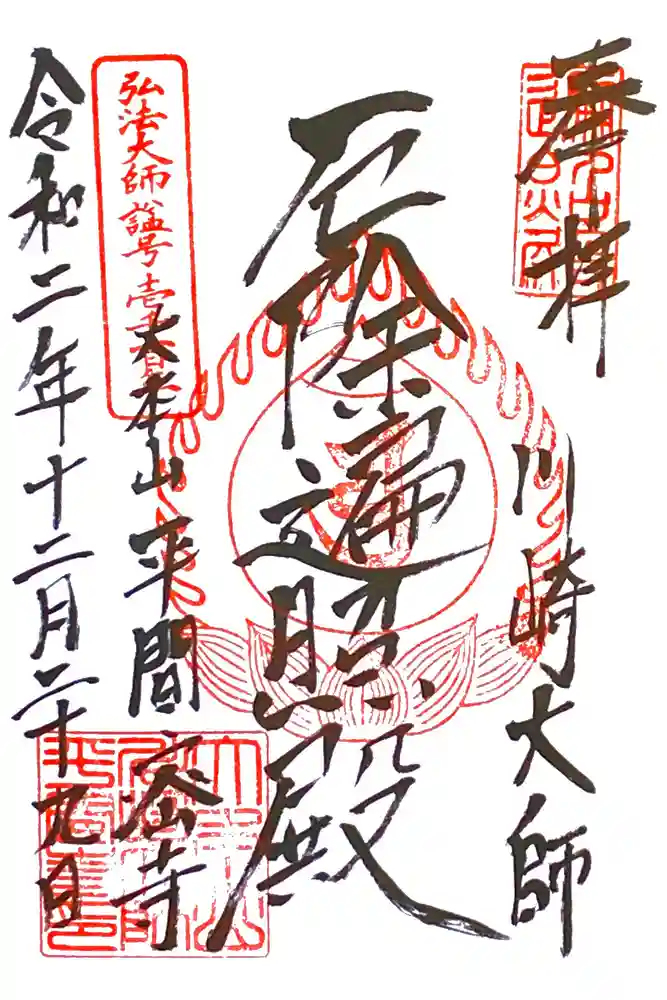 奉拝
川崎大師
厄除遍照殿
弘法大師諡号壱千百年
大本山平間密寺
令和二年十二月二十九日